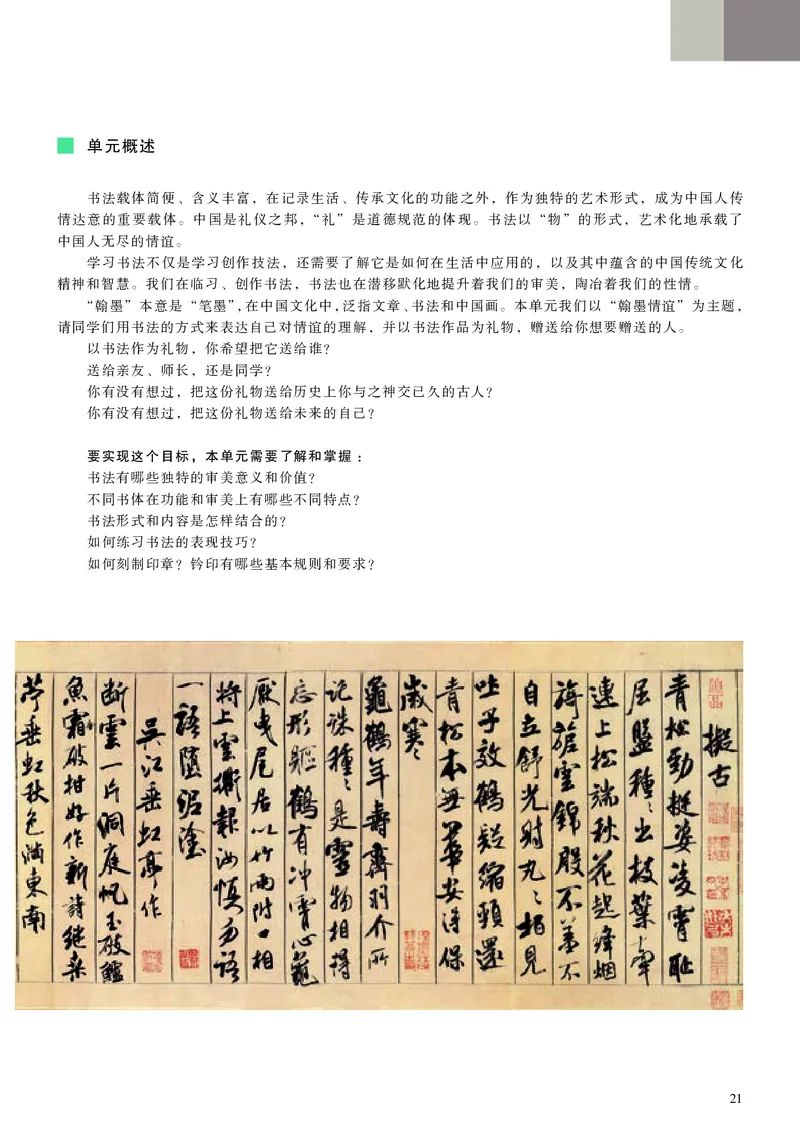 单元概述
书法载体简便、含义丰富，在记录生活、传承文化的功能之外，作为独特的艺术形式，成为中国人传
情达意的重要载体。中国是礼仪之邦，“礼”是道德规范的体现。书法以“物”的形式，艺术化地承载了
中国人无尽的情谊。
学习书法不仅是学习创作技法，还需要了解它是如何在生活中应用的，以及其中蕴含的中国传统文化
精神和智慧。我们在临习、创作书法，书法也在潜移默化地提升着我们的审美，陶冶着我们的性情。
“翰墨”本意是“笔墨”，在中国文化中，泛指文章、书法和中国画。本单元我们以“翰墨情谊”为主题，
请同学们用书法的方式来表达自己对情谊的理解，并以书法作品为礼物，赠送给你想要赠送的人。
以书法作为礼物，你希望把它送给谁？
送给亲友、师长，还是同学？
你有没有想过，把这份礼物送给历史上你与之神交已久的古人？
你有没有想过，把这份礼物送给未来的自己？
要实现这个目标，本单元需要了解和掌握：
书法有哪些独特的审美意义和价值？
不同书体在功能和审美上有哪些不同特点？
书法形式和内容是怎样结合的？
如何练习书法的表现技巧？
如何刻制印章？钤印有哪些基本规则和要求？
擬古
青松勁挺姿凌霄耻
屈盤種々出枝葉牽
連上松端秋花起絳烟
旖旎雲錦殷不羞不
自立舒光射丸々柏見
吐子效鶴疑縮頸還
青松本無華安得保
歲寒々
龜鶴年壽齊羽介所
託殊種々是靈物相得
忘形軀鶴有冲霄心龜
厭曳尾居以竹兩附口相
將上雲衢報汝慎勿語
一語墮泥塗
吳江垂虹亭作
断雲一片洞庭帆玉破鱸
魚霜破柑好作新詩継桑
苧垂虹秋色滿東南
21